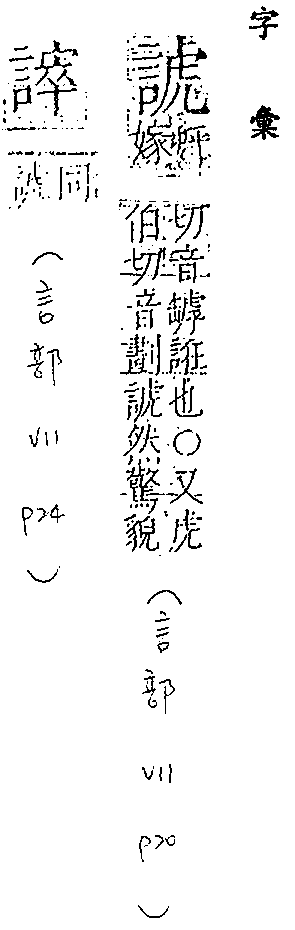 字彙
諕
嫁
切音罅誑也○又虎
伯切音劃諕然驚貌
(言部 VII P20)
誶
同
(言部 VII P24)